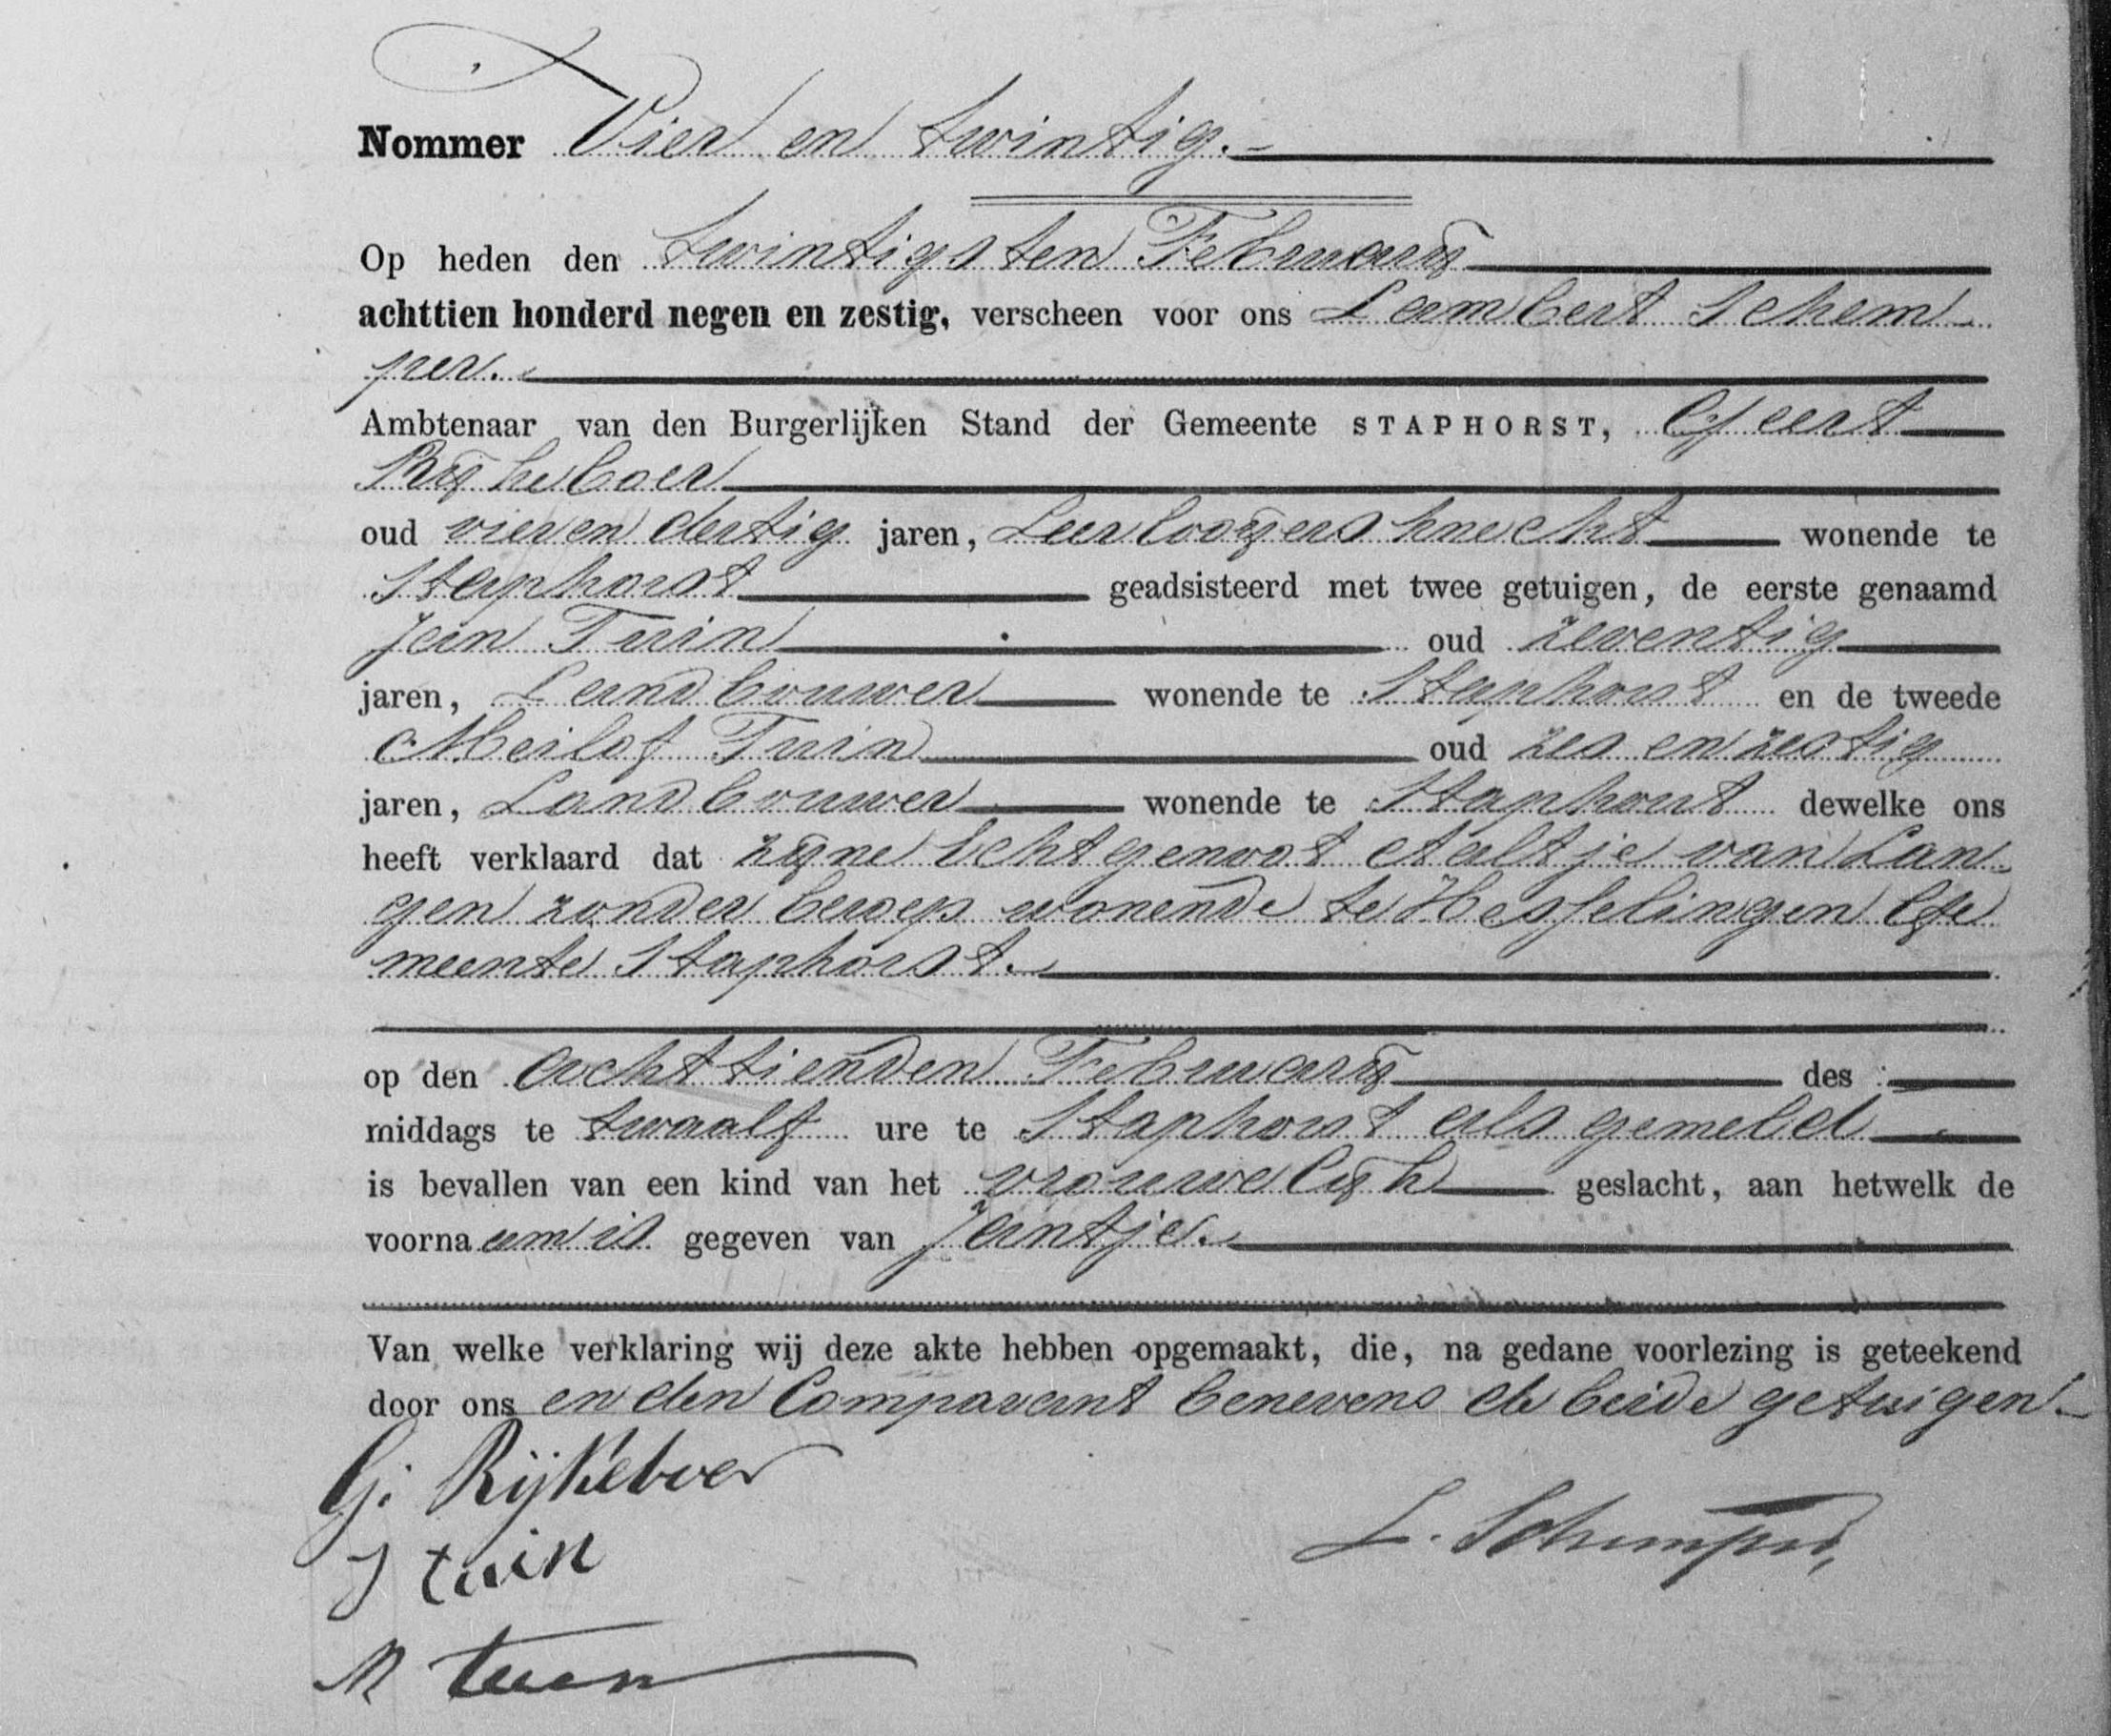 Nommer Vier en twintig.-
Op heden den twintigsten Februarij
achttien honderd negen en zestig, verscheen voor ons Lambert Schem
per.
Ambtenaar van den Burgerlijken Stand der Gemeente STAPHORST, Geert
Rijkeboer
oud vier en dertig jaren, Leerlooijers knecht wonende te
Staphorst geadsisteerd met twee getuigen, de eerste genaamd
Jan Tuin oud zeventig
jaren, Landbouwer wonende te Staphorst en de tweede
Meilof Tuin oud zes en zestig
jaren, Landbouwer wonende te Staphorst dewelke ons
heeft verklaard dat zijne Echtgenoot Aaltje van Lan
gen zonder beroep wonende te Hesselingen Ge
meente Staphorst.
op den achttienden Februarij des
middags te twaalf ure te Staphorst als gemeld
is bevallen van een kind van het vrouwelijk geslacht, aan hetwelk de
voornaam is gegeven van Jantje.
Van welke verklaring wij deze akte hebben opgemaakt, die, na gedane voorlezing is geteekend
door ons en den Comparant benevens de beide getuigen.
G. Rijkeboer
L. Schemper,
J tuin
M tuin